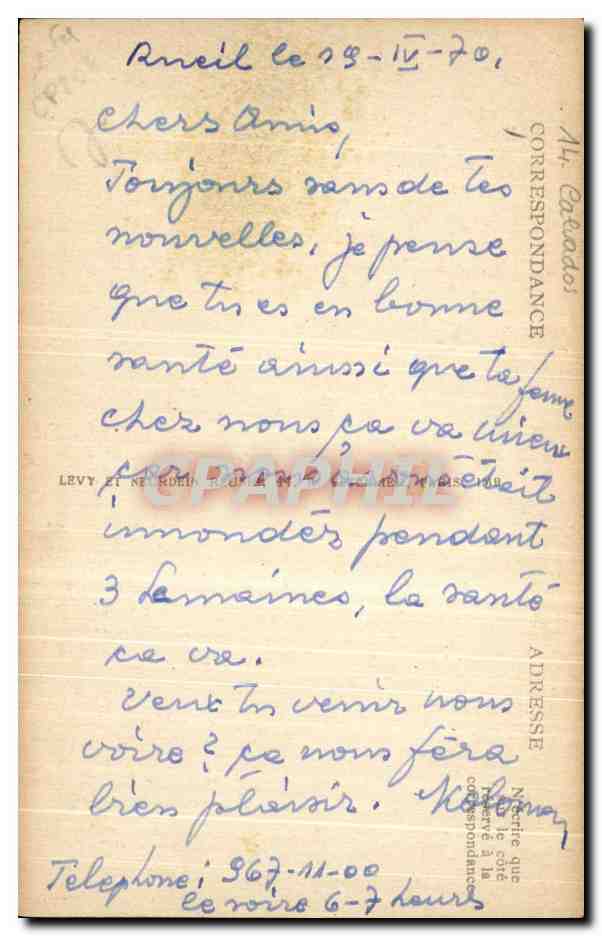 Rueil le 19-IV-70,
chers Amis,
Toujours sans de tes
nouvelles, je pense
que tu es en bonne
santé ainssi que ta femme
chez nous ça va mieux
car on était
innondéz pendant
3 semaines, la santé
ça va.
Veux tu venir nous
voire? ça nous féra
bien pláisir.
Telephone: 967-11-00
le soire 6-7 heurs
14. Calvados
CORRESPONDANCE
ADRESSE
N'écrire que
le côté
réservé à la
correspondance
LEVY ET NEURDEIN REUNIS 44
PARIS
CPAPHIL